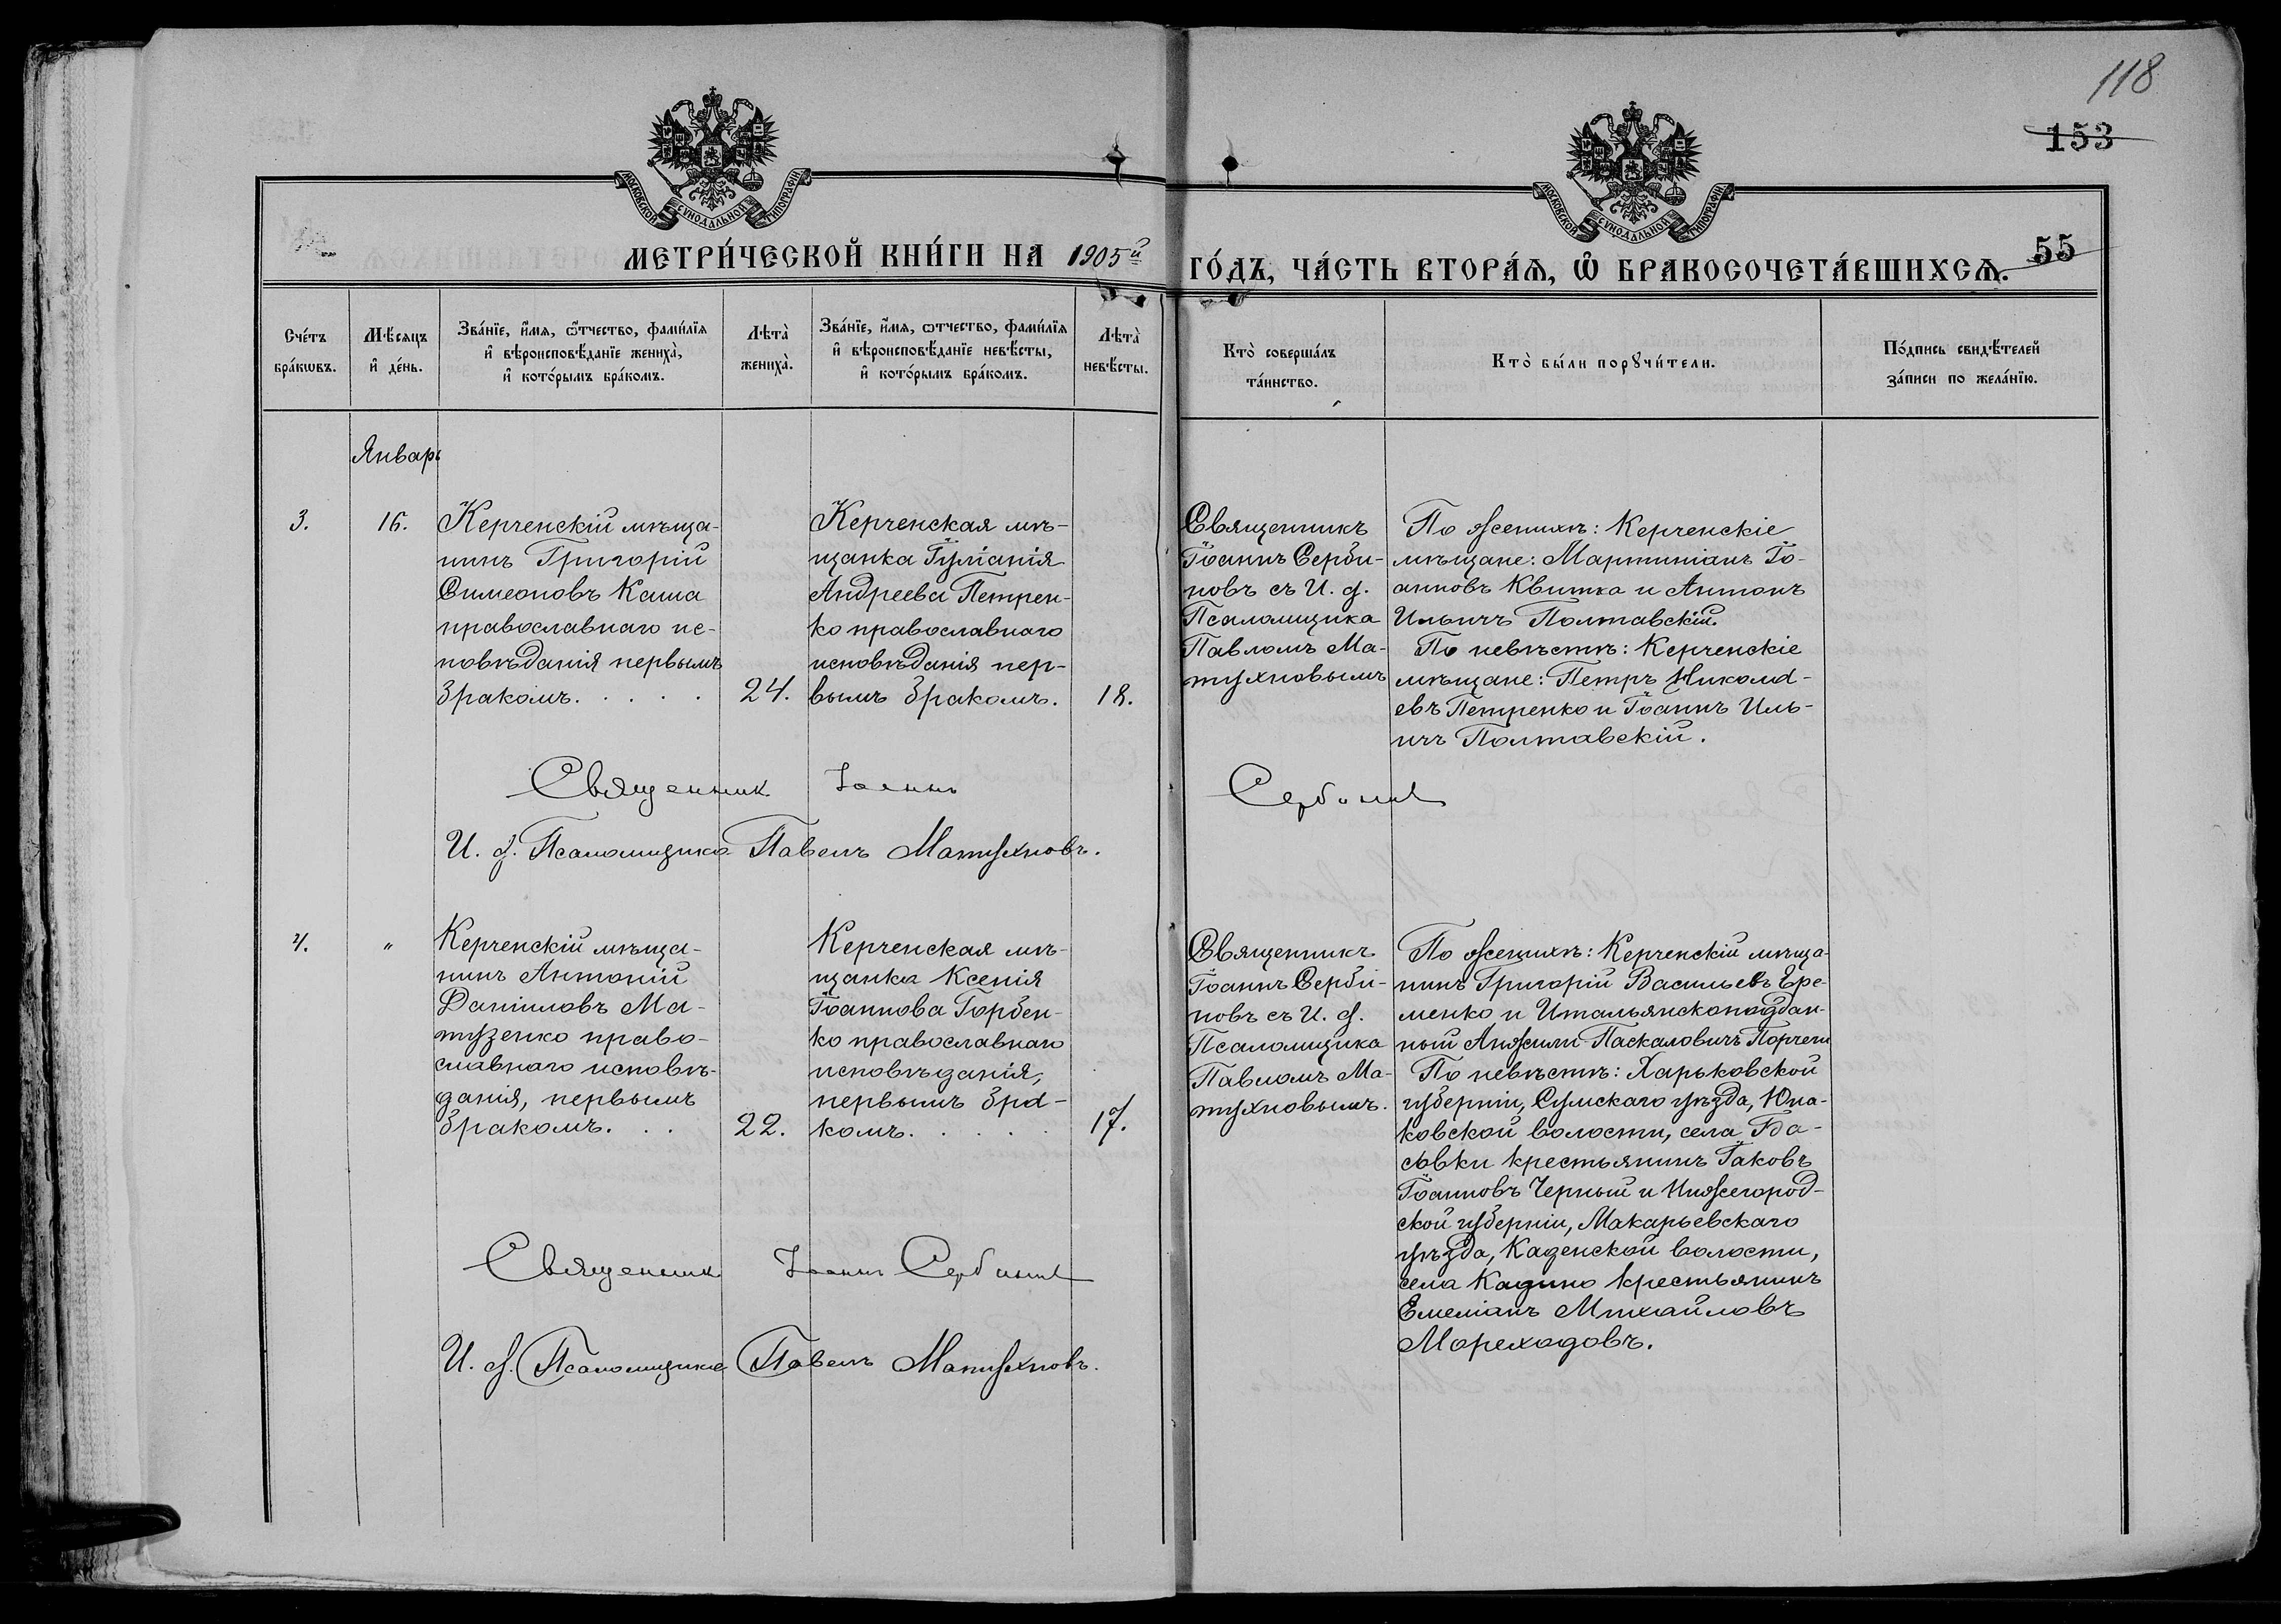 118
153
МОСКОВСКОЙ СѴНОДАЛЬНОЙ ТИПОГРАФІИ
МОСКОВСКОЙ СѴНОДАЛЬНОЙ ТИПОГРАФІИ
МЕТРИ́ЧЕСКОЙ КНИ́ГИ НА 1905й
ГО́ДЪ, ЧА́СТЬ ВТОРА́Ѧ, Ѿ БРАКОСОЧЕТА́ВШИХСѦ.
55
Сче́тъ
бра́кѡвъ.
Мѣ́сяцъ
и҆ де́нь.
Зва́нїе, и҆́мѧ, ѻ҆́тчество, фами́лїѧ
и҆ вѣроисповѣ́данїе жениха̀,
и҆ кото́рымъ бра́комъ.
Лѣта̀
жениха̀.
Зва́нїе, и҆́мѧ, ѻтчество, фами́лїѧ
и҆ вѣроисповѣ́данїе невѣ́сты,
и҆ кото́рымъ бра́комъ.
Лѣта̀
невѣ́сты.
Кто̀ соверша́лъ
та́инство.
Кто̀ бы́ли порꙋчи́тели.
По́дпись свидѣ́телей
за́писи по жела́нїю.
Январь
3.
16.
Керченскій мѣща-
нинъ Григорій
Симеоновъ Каша
православнаго ис-
повѣданія первымъ
бракомъ. . . . .
24.
Керченская мѣ-
щанка Іуліанія
Андреева Петрен-
ко православнаго
исповѣданія пер-
вымъ бракомъ.
18.
Священникъ
Іоаннъ Серби-
новъ съ И. д.
Псаломщика
Павломъ Ма-
тухновымъ
По женихѣ: Керченскіе
мѣщане: Мартиніанъ Іо-
анновъ Квитка и Антонъ
Ильичъ Полтавскій.
По невѣстѣ: Керченскіе
мѣщане: Петръ Никола-
евъ Петренко и Іоаннъ Иль-
ичъ Полтавскій.
Священник Іоаннъ Сербиновъ
И. д. Псаломщика Павелъ Матухновъ.
4.
"
Керченскій мѣща-
нинъ Антоній
Даніиловъ Ма-
тузенко право-
славнаго исповѣ-
данія, первымъ
бракомъ. . .
22.
Керченская мѣ-
щанка Ксенія
Іоаннова Горбен-
ко православнаго
исповѣданія,
первымъ бра-
комъ. . . . .
17.
Священникъ
Іоаннъ Серби-
новъ съ И. д.
Псаломщика
Павломъ Ма-
тухновымъ.
По женихѣ: Керченскій мѣща-
нинъ Григорій Васильевъ Ере-
менко и Итальянскоподдан-
ный Анжили Паскаловичъ Порчели
По невѣстѣ: Харьковской
губерніи, Сумскаго уѣзда, Юна-
ковской волости, села
крестьянинъ Іаковъ
Іоанновъ Черный и Нижегород-
ской губерніи, Макарьевскаго
уѣзда, Каденской волости,
села Кадино крестьянинъ
Емеліанъ Михайловъ
Мореходовъ.
Священник Іоаннъ Сербиновъ
И. д. Псаломщика Павелъ Матухновъ.